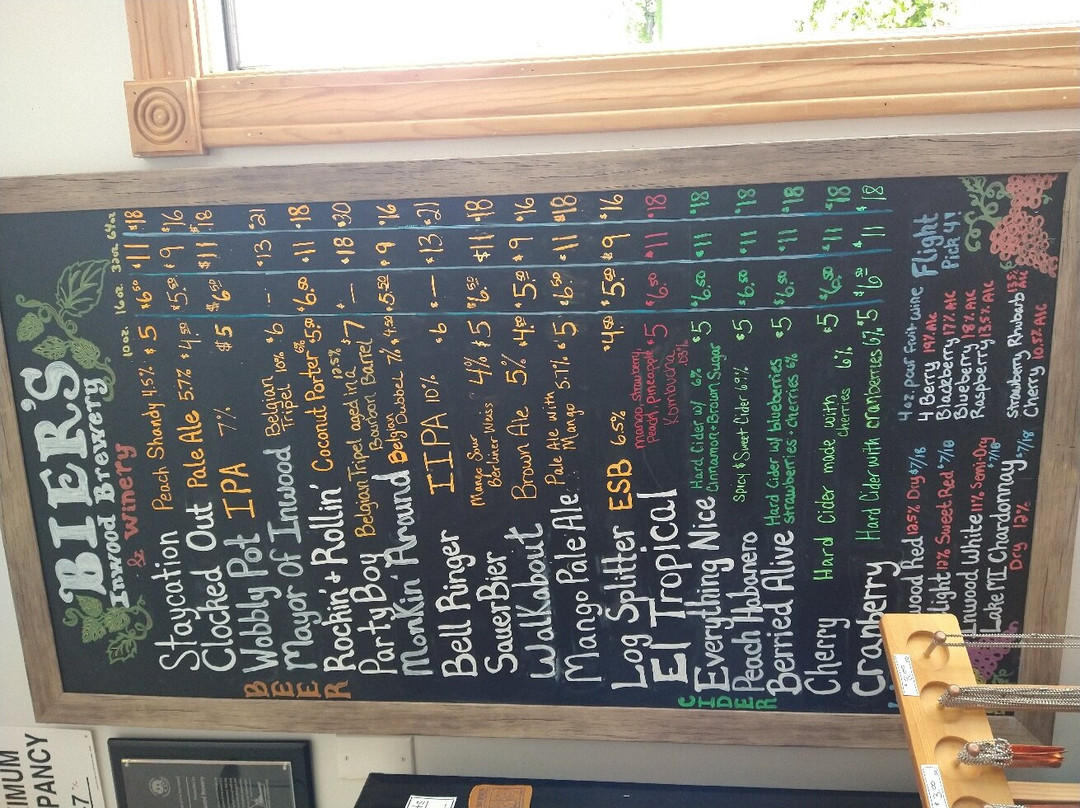 BIER'S
Inwood Brewery
& Winery
10oz. 16oz. 32oz. 64oz
Staycation Peach Shandy 4.5% $5 $6.50 $11 $18
Clocked Out Pale Ale 5.7% $4.50 $5.50 $9 $16
Wobbly Pot IPA 7% $5 $6.50 $11 $18
Mayor Of Inwood Belgian Tripel 10% $6 — $13 $21
Rockin' + Rollin' Coconut Porter 6% $5.50 $6.50 $11 $18
Party Boy Belgian Tripel aged in a Bourbon Barrel 12.2% $7 — $18 $30
Monkin' Around Belgian Dubbel 7% $4.50 $5.50 $9 $16
Bell Ringer IIPA 10% $6 — $13 $21
SauerBier Mango Sour Berliner Weiss 4% $5 $6.50 $11 $18
Walkabout Brown Ale 5% $4.00 $5.00 $9 $16
Mango Pale Ale Pale Ale with Mango 5.7% $5 $6.50 $11 $18
Log Splitter ESB 6.5% $4.50 $5.00 $9 $16
El Tropical mango, strawberry, Peach, pineapple Kombucha $5 $6.50 $11 $18
BEER
Everything Nice Hard Cider w/ 6% Cinnamon+Brown Sugar $5 $6.50 $11 $18
Peach Habanero Spicy & Sweet Cider 6.9% $5 $6.50 $11 $18
Berried Alive Hard Cider w/ blueberries strawberries + cherries 6% $5 $6.50 $11 $18
Cherry Hard Cider made with cherries 6% $5 $6.50 $11 $18
Cranberry Hard Cider with cranberries 6% $5 $6.50 $11 $18
CIDER
wood Red 12.5% Dry $7/18
light 12% Sweet Red $7/18
Inwood White 11% Semi-Dry $7/18
Lake MI Chardonnay $7/18
Dry 12%
4oz pour Fruit wine
4 Berry 19% Alc
Blackberry 17% Alc
Blueberry 18% Alc
Raspberry 13.5% Alc
Strawberry Rhubarb 13% Alc
Cherry 10.5% Alc
Flight
Pick 4!